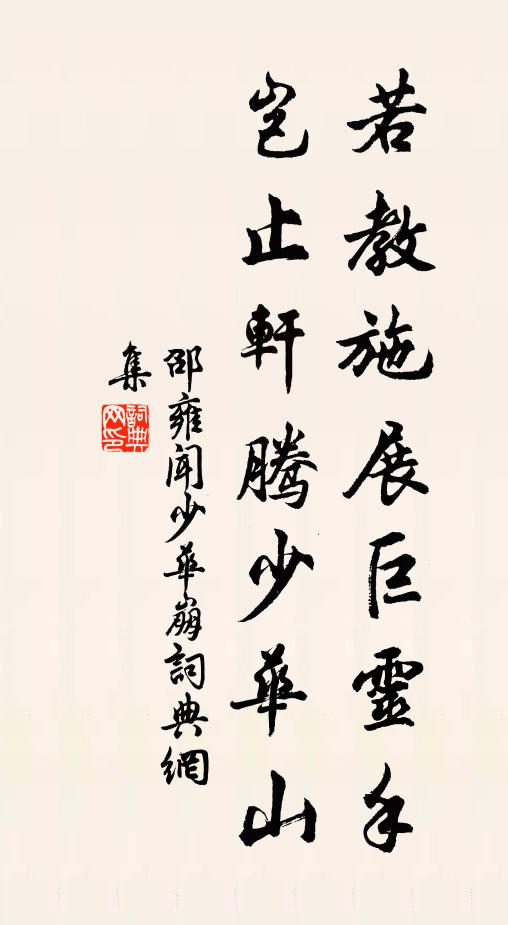 若教施展巨靈手
豈止軒騰少華山
邵雍聞少華崩詞典網
集
詞典网印